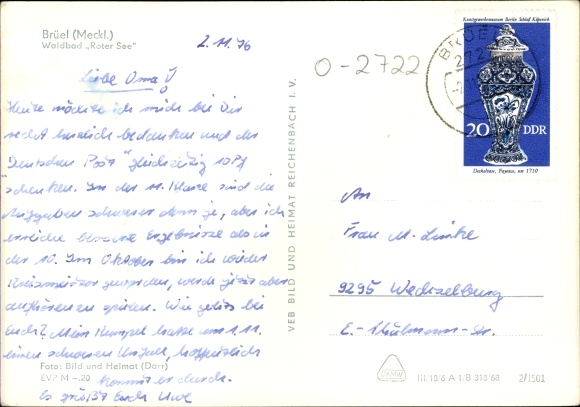 Brüel (Meckl.)
Waldbad „Roter See"
2.11.76
Liebe Oma!
Heute möchte ich mich bei Dir
recht herzlich bedanken und der
"Deutschen Post" gleichzeitig 10 Pf
"schenken. In der 11. Klasse sind die
Aufgaben schwerer denn je, aber ich
erreiche bessere Ergebnisse als in
der 10. Im Oktober bin ich wieder
Kreismeister geworden, werde jetzt aber
aufhören zu spielen. Wie geht's bei
Euch? Mein Kumpel hatte am 1.11.
einen schweren Unfall, hoffentlich
kommt er durch.
Es grüßt Euch Uwe
Foto: Bild und Heimat (Darr)
EVP M –.20
VEB BILD UND HEIMAT REICHENBACH I. V.
O-2722
BRÜEL
272
Kunstgewerbemuseum Berlin Schloß Köpenick
20 DDR
Deckelvase, Fayence, um 1710
An
Frau M. Linke
9295 Wechselburg
E.-Thälmann-Str.
III/18/6 A 1/B 318/68
2/1501